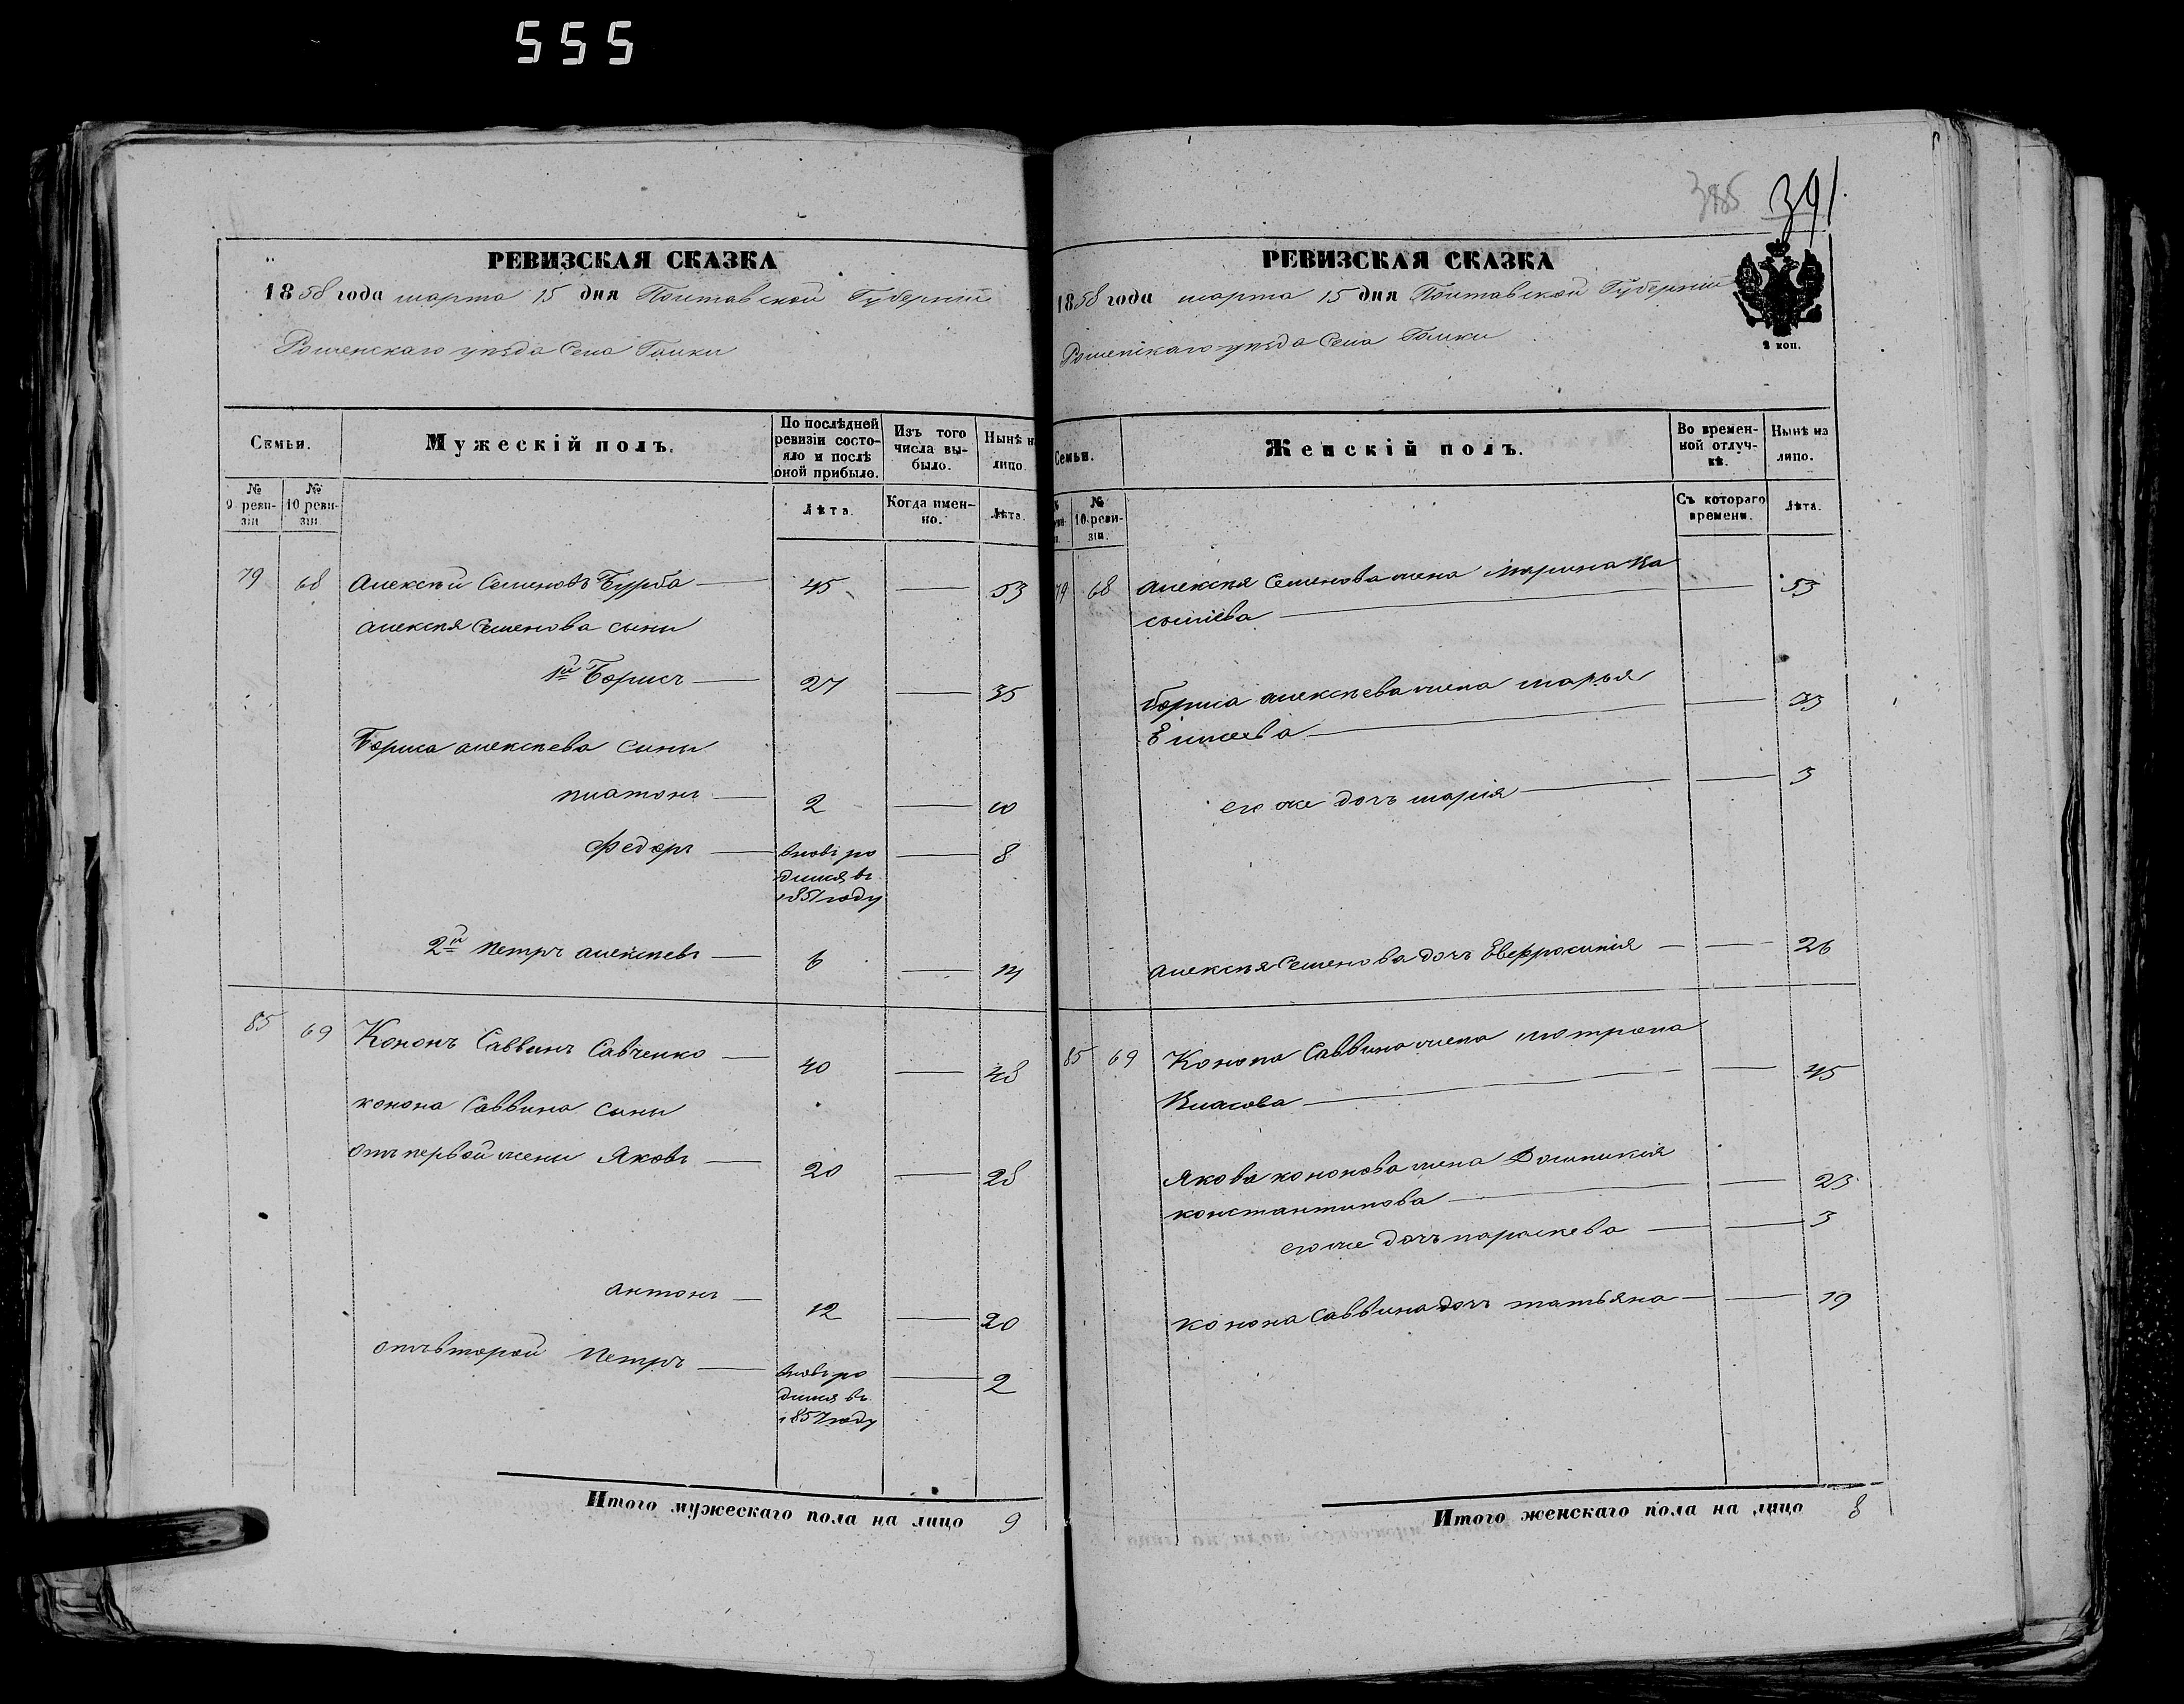 555
385 391.
РЕВИЗСКАЯ СКАЗКА
1858 года марта 15 дня Полтавской Губерніи
Роменскаго уѣзда Села Галки
Семьи.
Мужескій полъ.
По послѣдней ревизіи состояло и послѣ оной прибыло.
Изъ того числа выбыло.
Нынѣ н
лицо.
№ 9 ревизіи
№ 10 ревизіи.
Лѣта.
Когда именно.
Лѣта.
79 68 Алексѣй Семеновъ Бурба 45 53
Алексѣя Семенова сыны
1й Борисъ 27 35
Бориса Алексѣева сыны
Платонъ 2 10
Федоръ вновь ро 8
дился въ
1851 году
2й Петръ Алексѣевъ 6 14
85 69 Кононъ Саввинъ Савченко 40 48
Конона Саввина сыны
отъ первой жены Яковъ 20 28
Антонъ 12 20
отъ второй Петръ вновь ро 2
дился въ
1857 году
Итого мужескаго пола на лицо 9
РЕВИЗСКАЯ СКАЗКА
1858 года марта 15 дня Полтавской Губерніи
Роменскаго уѣзда Села Галки
2 коп.
Семьи.
Женскій полъ.
Во временной отлучкѣ.
Нынѣ на лицо.
№ 10 ревизіи.
Съ котораго времени.
Лѣта.
79 68 Алексѣя Семенова жена Марина Ва 53
сильева
Бориса Алексѣева жена Марья 33
Елисеева
его же дочь Марія 3
Алексѣя Семенова дочь Евфросинія 26
85 69 Конона Саввина жена Мотрона 45
Власова
Якова Кононова жена Домникія 23
Константинова
его же дочь Параскева 3
Конона Саввина дочь Татьяна 19
Итого женскаго пола на лицо 8